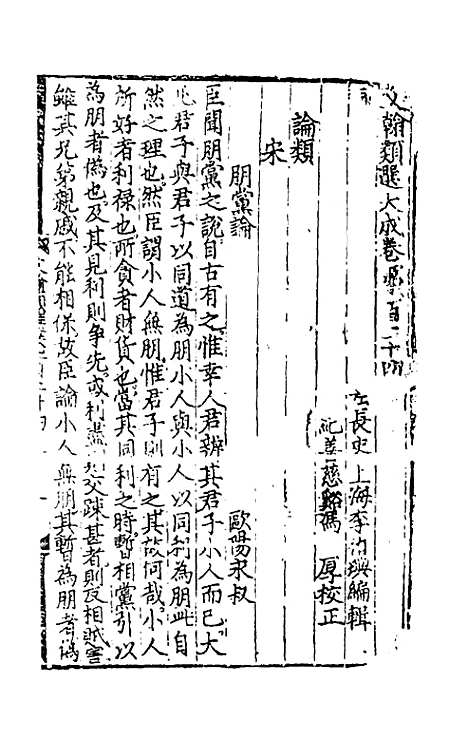 文翰類選大成卷第一百二十四
左長史上海李伯璵編輯
紀善慈谿馮厚校正
論類
宋
朋黨論 歐陽永叔
臣聞朋黨之說自古有之惟幸人君辨其君子小人而已大
凡君子與君子以同道為朋小人與小人以同利為朋此自
然之理也然臣謂小人無朋惟君子則有之其故何哉小人
所好者利祿也所貪者財貨也當其同利之時暫相黨引以
為朋者偽也及其見利則爭先或利盡而交疎甚者則反相賊害
雖其兄弟親戚不能相保故臣論小人無朋其暫為朋者偽